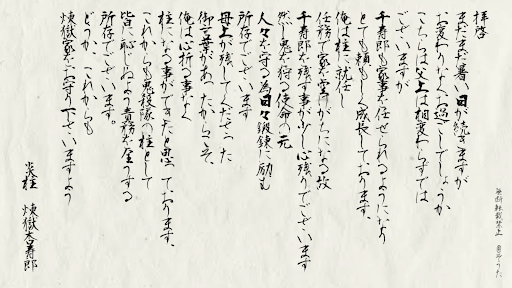 無断転載禁止
拝啓
まだまだ暑い日が続きますが
お変わりなくお過ごしでしょうか
こちらは父上は相変わらずでは
ございますが
千寿郎も家事を任せられるようになり
とても頼もしく成長しております。
俺は柱に就任し
任務で家を空けがちになる故
千寿郎を残す事が少し心残りでございます
然し鬼を狩る使命の元
人々を守る為日々鍛錬に励む
所存でございます。
母上が残してくださった
御言葉があったからこそ、
俺は心折る事なく
柱になる事ができたと思っております。
これからも鬼殺隊の柱として
皆に恥じぬよう責務を全うする
所存でございます。
どうか、これからも
煉獄家をお守り下さいますよう
炎柱 煉獄杏寿郎